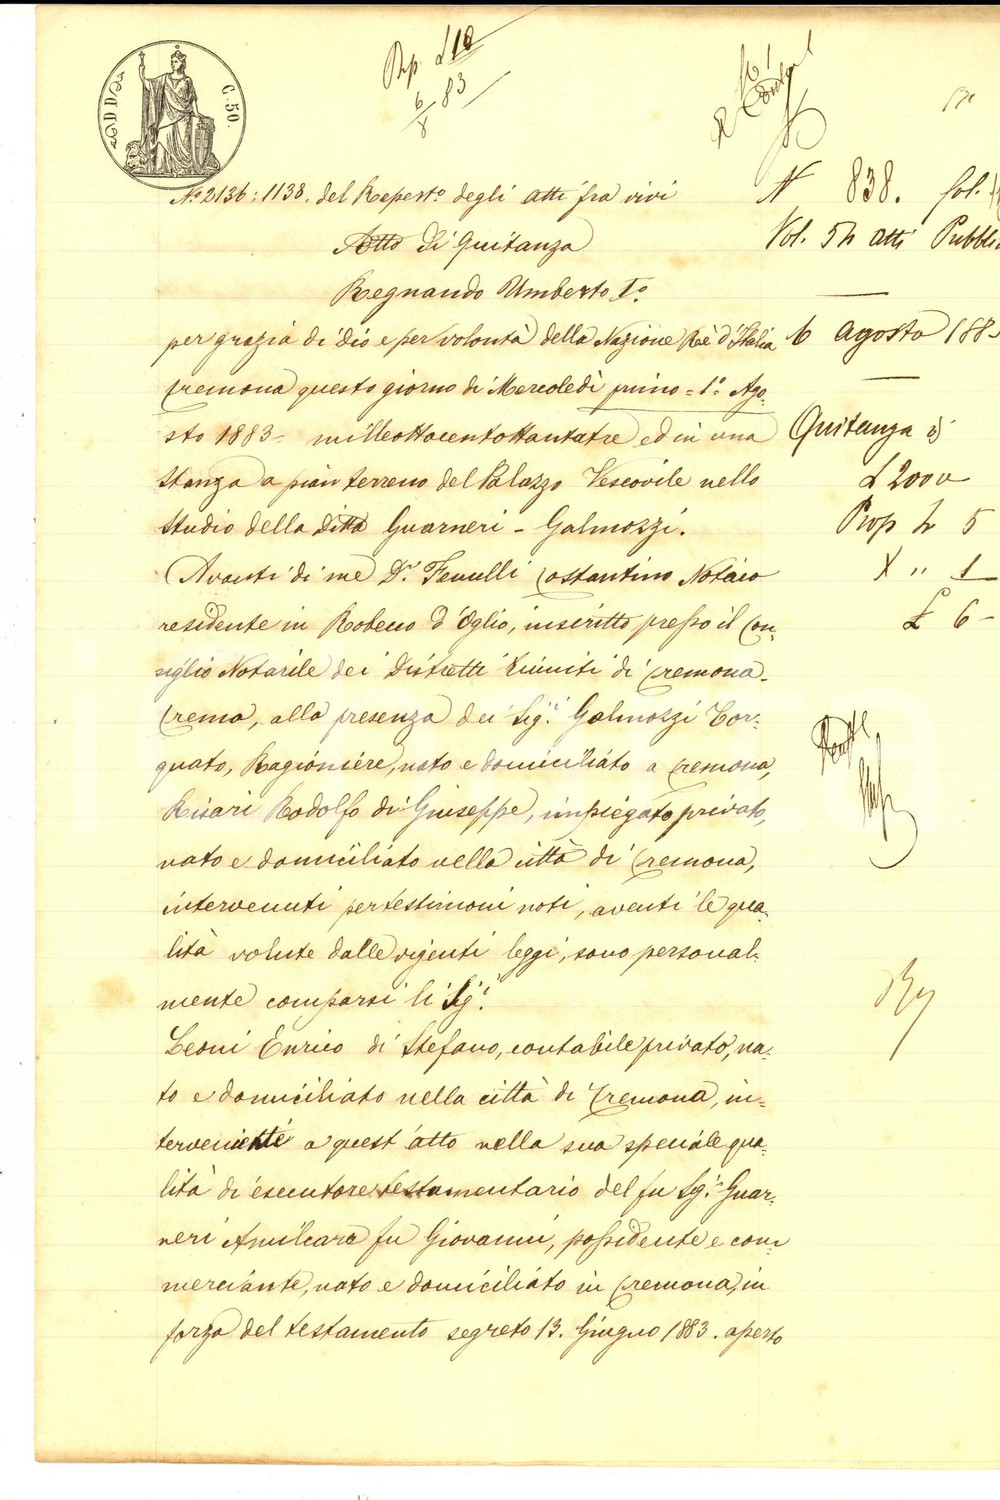 C. 50.
Rep. £ 10
6/8 83
N.º 2136:1138. del Repert.º degli atti fra vivi
Atto di Quitanza
Regnando Umberto I.º
per grazia di Dio e per volontà della Nazione Rè d'Italia
Cremona questo giorno di Mercoledì primo = 1.º Ago=
sto 1883 = milleottocentottantatre ed in una
stanza a pian terreno del Palazzo Vescovile nello
studio della Ditta Guarneri - Galmozzi.
Avanti di me D.r Fenulli Costantino Notaio
residente in Robecco d'Oglio, inscritto presso il Con=
siglio Notarile dei Distretti Riuniti di Cremona-
Crema, alla presenza dei Sig.ri Galmozzi Tor=
quato, Ragioniere, nato e domiciliato a Cremona,
Risari Rodolfo di Giuseppe, impiegato privato,
nato e domiciliato nella città di Cremona,
intervenuti per testimoni noti, aventi le qua=
lità volute dalle vigenti leggi, sono personal=
mente comparsi li Sig.i
Leoni Enrico di Stefano, contabile privato, na=
to e domiciliato nella città di Cremona, in=
terveniente a quest'atto nella sua speciale qua=
lità di esecutore testamentario del fu Sig.r Guar=
neri Amilcare fu Giovanni, possidente e com=
merciante, nato e domiciliato in Cremona, in
forza del testamento segreto 13. Giugno 1883. aperto
N 838. fol.
Vol. 52 atti Pubbli
6 Agosto 188
Quitanza di
£ 2000
Prop £ 5
X " 1
£ 6 -